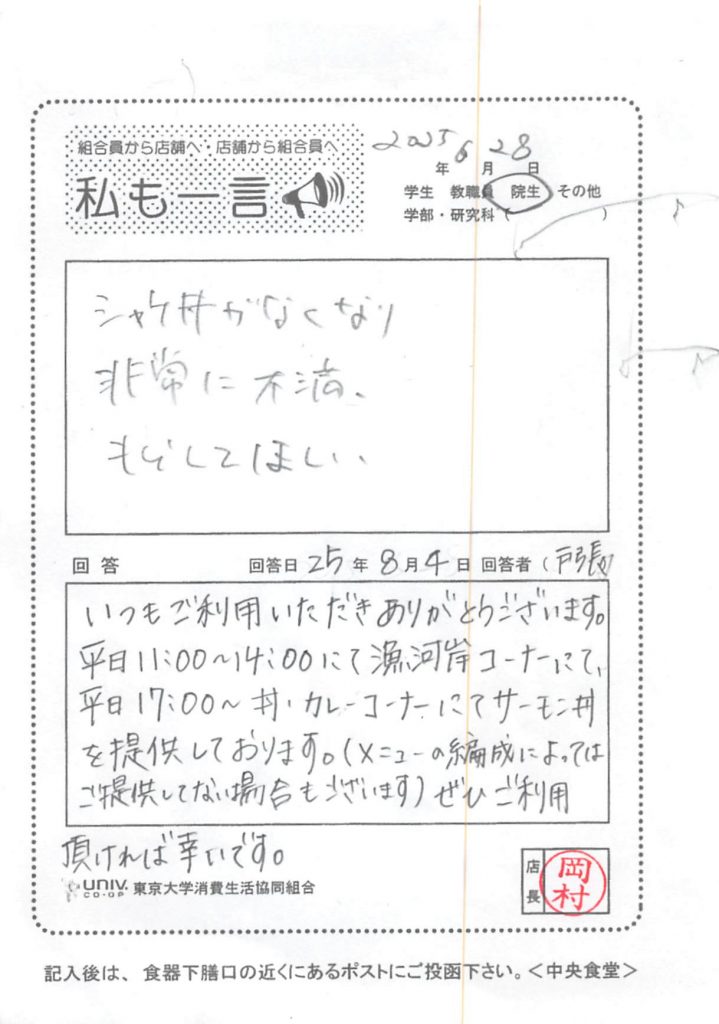 組合員から店舗へ・店舗から組合員へ
私も一言
2025年6月28日
学生 教職員 院生 その他
学部・研究科( )
シャケ丼がなくなり
非常に不満、
もどしてほしい、
回答 回答日25年8月4日 回答者(戸張)
いつもご利用いただきありがとうございます。
平日11:00~14:00にて漁河岸コーナーにて、
平日17:00~丼・カレーコーナーにてサーモン丼
を提供しております。(メニューの編成によっては
ご提供してない場合もございます)ぜひご利用
頂ければ幸いです。
UNIV. CO-OP 東京大学消費生活協同組合
店長 岡村
記入後は、食器下膳口の近くにあるポストにご投函下さい。<中央食堂>